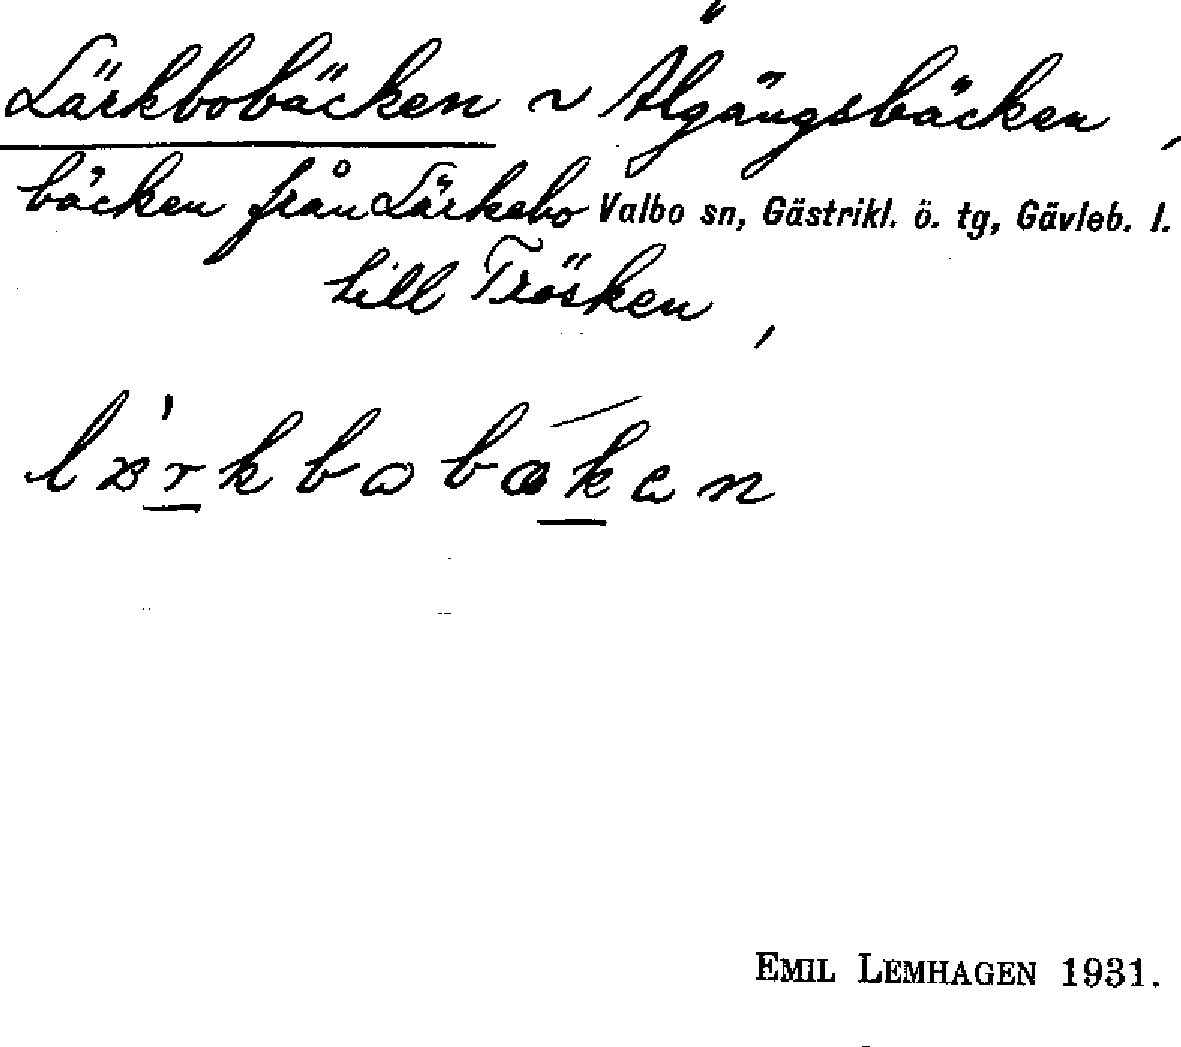 Lärkbobäcken ~ Älgängsbäcken,
bäcken från Lärkebo Valbo sn, Gästrikl. ö. tg, Gävleb. l.
till Trösken,
EMIL LEMHAGEN 1931.